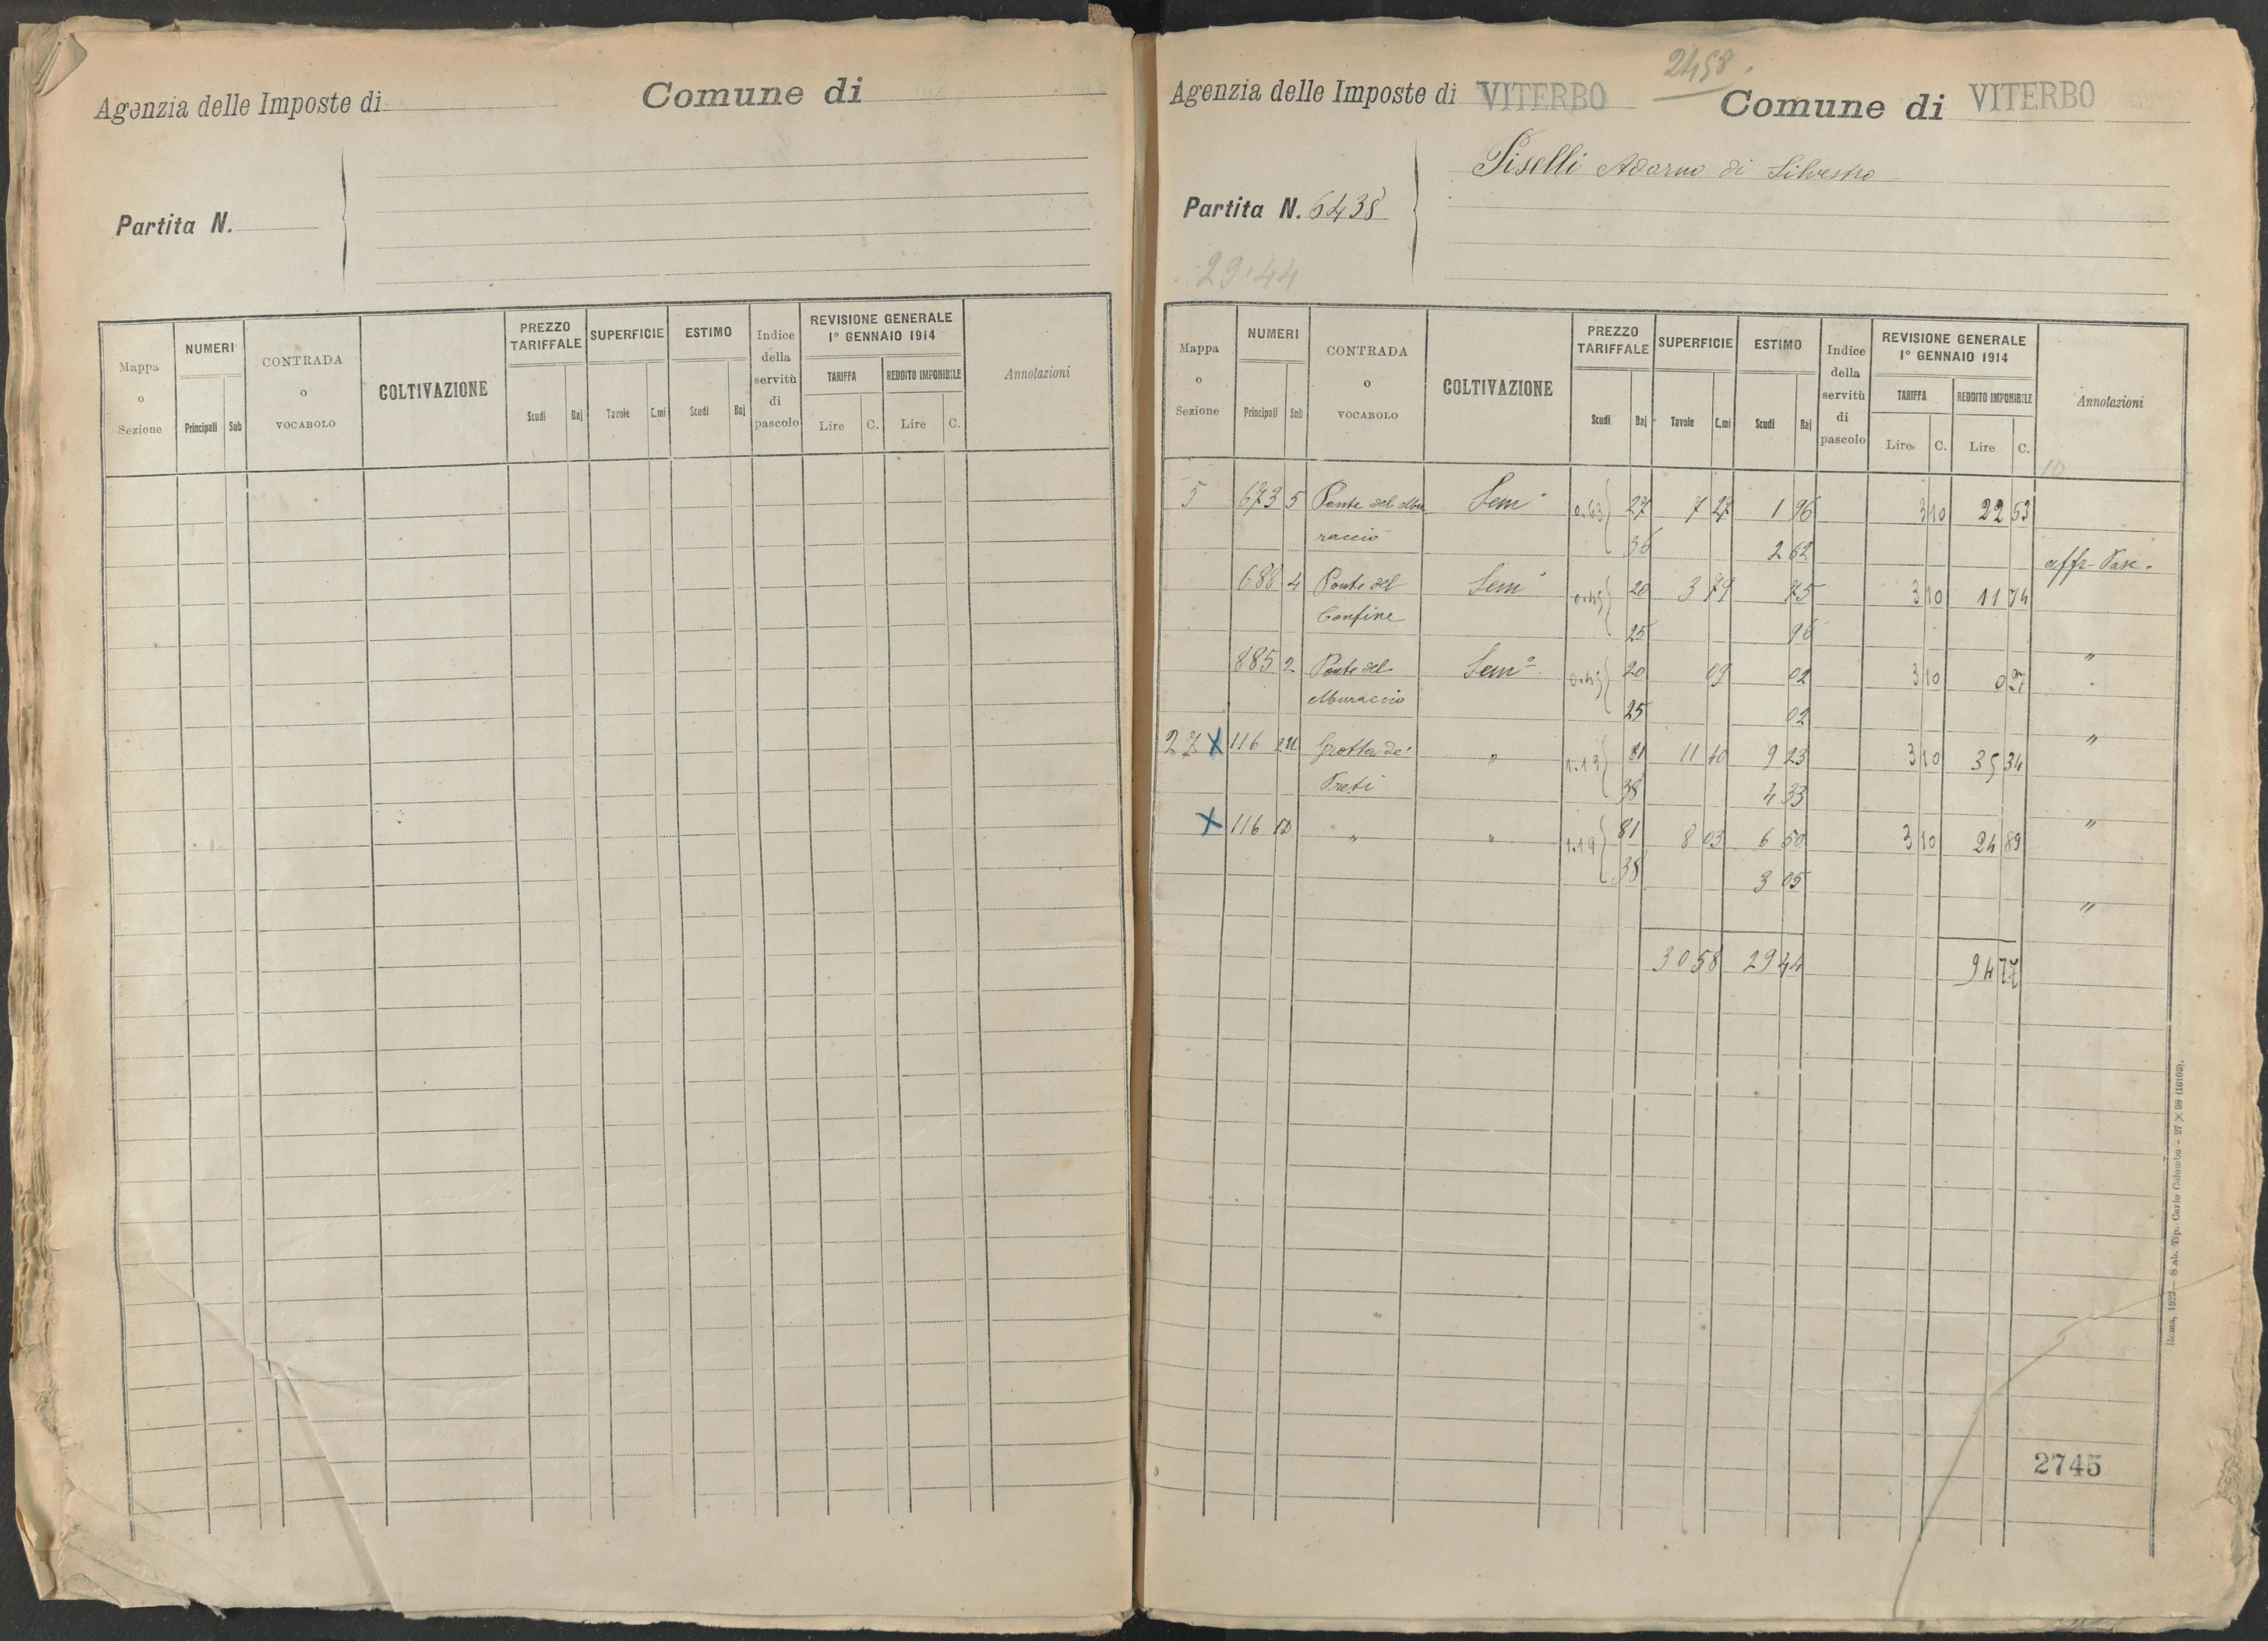 Agenzia delle Imposte di
Comune di
Partita N.
Mappa o Sezione
NUMERI
Principali Sub
CONTRADA o VOCABOLO
COLTIVAZIONE
PREZZO TARIFFALE
Scudi Baj
SUPERFICIE
Tavole C.mi
ESTIMO
Scudi Baj
Indice della servitù di pascolo
REVISIONE GENERALE
1° GENNAIO 1914
TARIFFA REDDITO IMPONIBILE
Lire C. Lire C.
Annotazioni
2458.
Agenzia delle Imposte di VITERBO
Comune di VITERBO
Piselli Adarno di Silvestro
Partita N. 6438
29.44
Mappa o Sezione
NUMERI
Principali Sub
CONTRADA o VOCABOLO
COLTIVAZIONE
PREZZO TARIFFALE
Scudi Baj
SUPERFICIE
Tavole C.mi
ESTIMO
Scudi Baj
Indice della servitù di pascolo
REVISIONE GENERALE
1° GENNAIO 1914
TARIFFA REDDITO IMPONIBILE
Lire C. Lire C.
Annotazioni
10
5 673 5 Ponte del Mu Sem° 0.63 27 7 27 1 96 3 10 22 53
raccio 36 2 62 affr. Pasc.
688 4 Ponte del Sem° 0.45 20 3 79 75 3 10 11 74
Confine 25 96 "
885 2 Ponte del Sem° 0.45 20 09 02 3 10 0 27
Muraccio 25 02 "
27 X 116 Grotta de' " 1.19 81 11 40 9 23 3 10 35 34
Preti 38 4 33 "
X 116 " " 1.19 81 8 03 6 50 3 10 24 89
38 3 05 "
30 58 29 44 94 77
2745
Roma, 1923 — Stab. Tip. Carlo Colombo - 27 X 38 (16103).